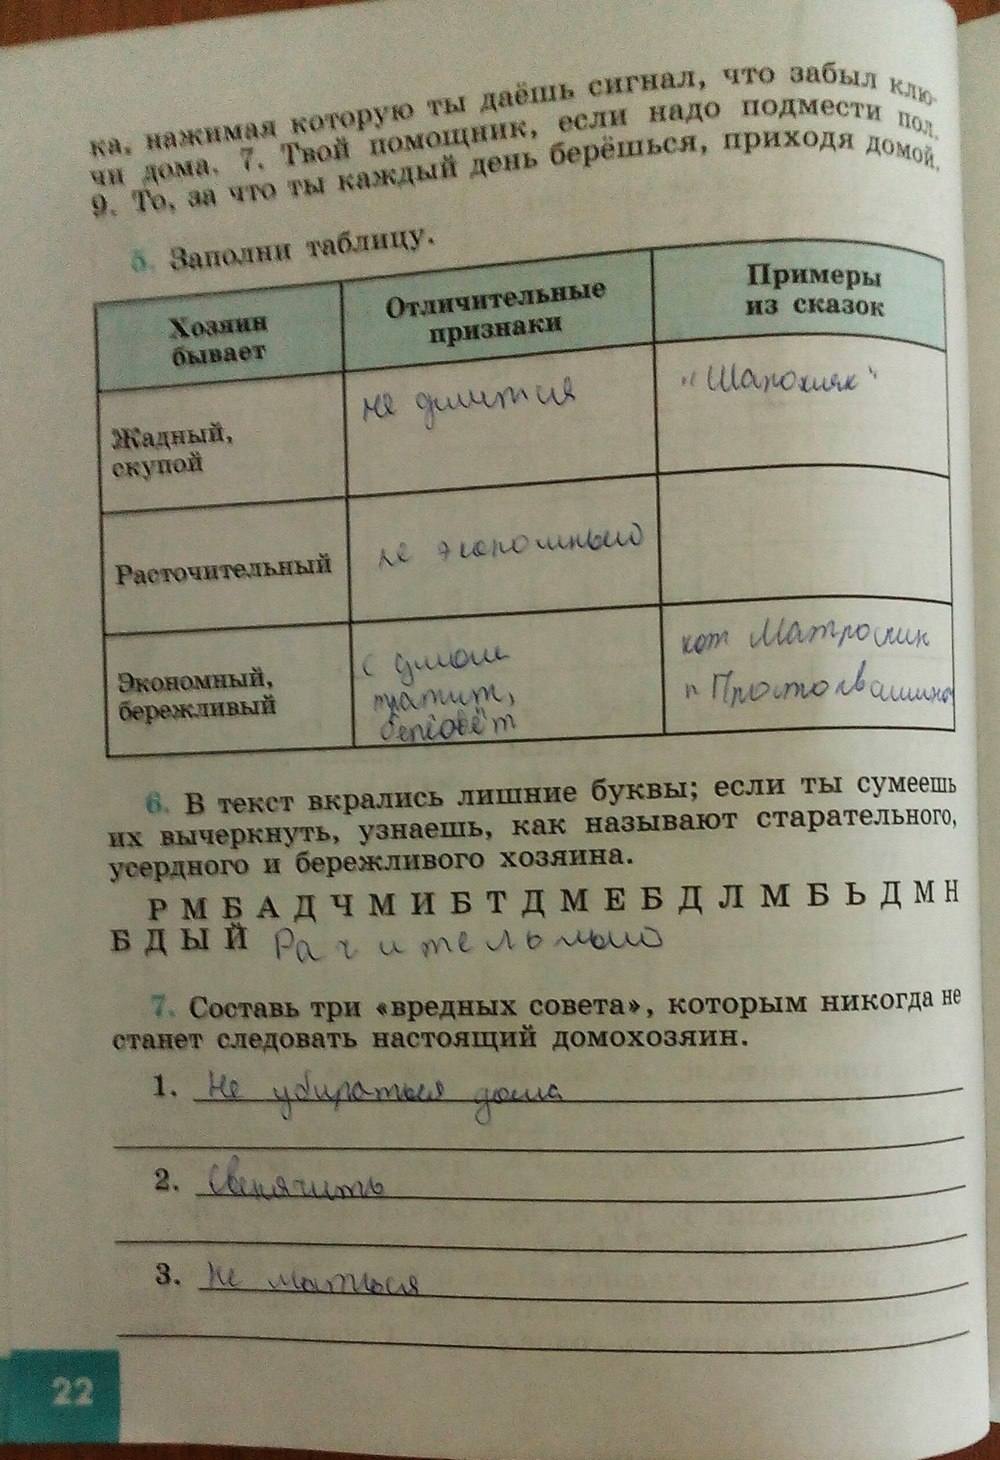 ка, нажимая которую ты даёшь сигнал, что забыл клю-
чи дома. 7. Твой помощник, если надо подмести пол.
9. То, за что ты каждый день берёшься, приходя домой.
5. Заполни таблицу.
Хозяин
бывает
Отличительные
признаки
Примеры
из сказок
Жадный,
скупой
не длится
"Шапокляк"
Расточительный
не экономный
Экономный,
бережливый
с умом
тратит,
кот Матроскин
Простоквашино
6. В текст вкрались лишние буквы; если ты сумеешь
их вычеркнуть, узнаешь, как называют старательного,
усердного и бережливого хозяина.
Р М Б А Д Ч М И Б Т Д М Е Б Д Л М Б Ь Д М Н
Б Д Ы Й
7. Составь три «вредных совета», которым никогда не
станет следовать настоящий домохозяин.
1. Не убираться дома
2. Свенячить
3. Не маться
22